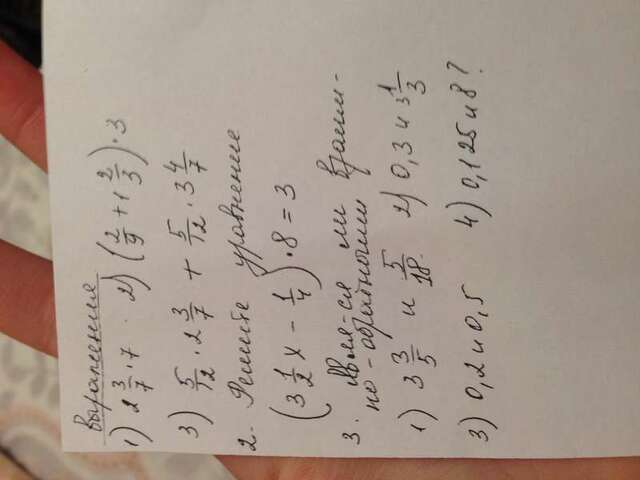 Выражения
1) 2 3/7 · 7 2) (2/9 + 1 2/3) · 3
3) 5/12 · 2 3/7 + 5/12 · 3 4/7
2. Решите уравнение
(3 1/2 x - 1/4) · 8 = 3
3. Явля-ся ли взаим-
но-обратными
1) 3 3/5 и 5/18. 2) 0,3 и 3 1/3
3) 0,2 и 0,5 4) 0,125 и 8?